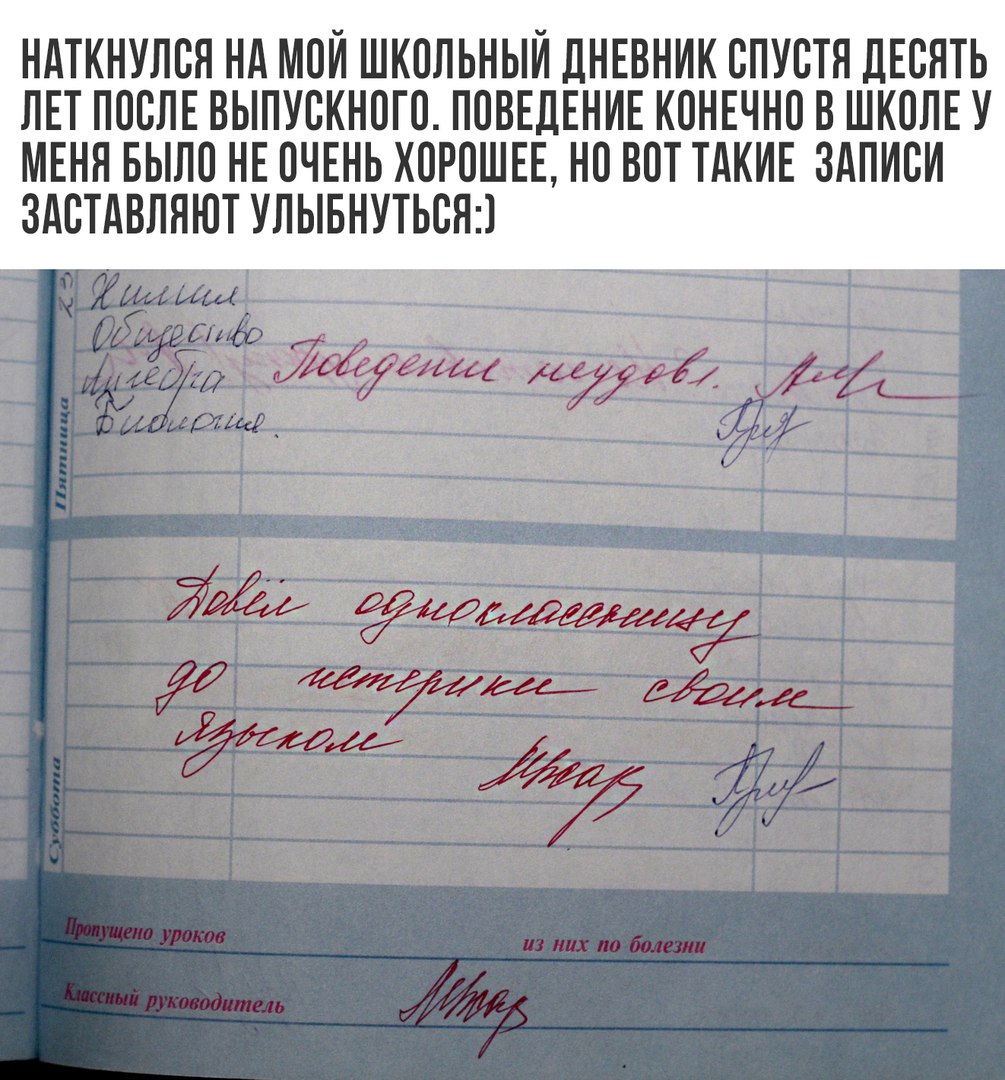 НАТКНУЛСЯ НА МОЙ ШКОЛЬНЫЙ ДНЕВНИК СПУСТЯ ДЕСЯТЬ
ЛЕТ ПОСЛЕ ВЫПУСКНОГО. ПОВЕДЕНИЕ КОНЕЧНО В ШКОЛЕ У
МЕНЯ БЫЛО НЕ ОЧЕНЬ ХОРОШЕЕ, НО ВОТ ТАКИЕ ЗАПИСИ
ЗАСТАВЛЯЮТ УЛЫБНУТЬСЯ:)
23
Химия
Общество
Алгебра
Биология.
Поведение неудовл.
Пятница
Довёл одноклассницу
до истерики своим
языком
Суббота
Пропущено уроков из них по болезни
Классный руководитель